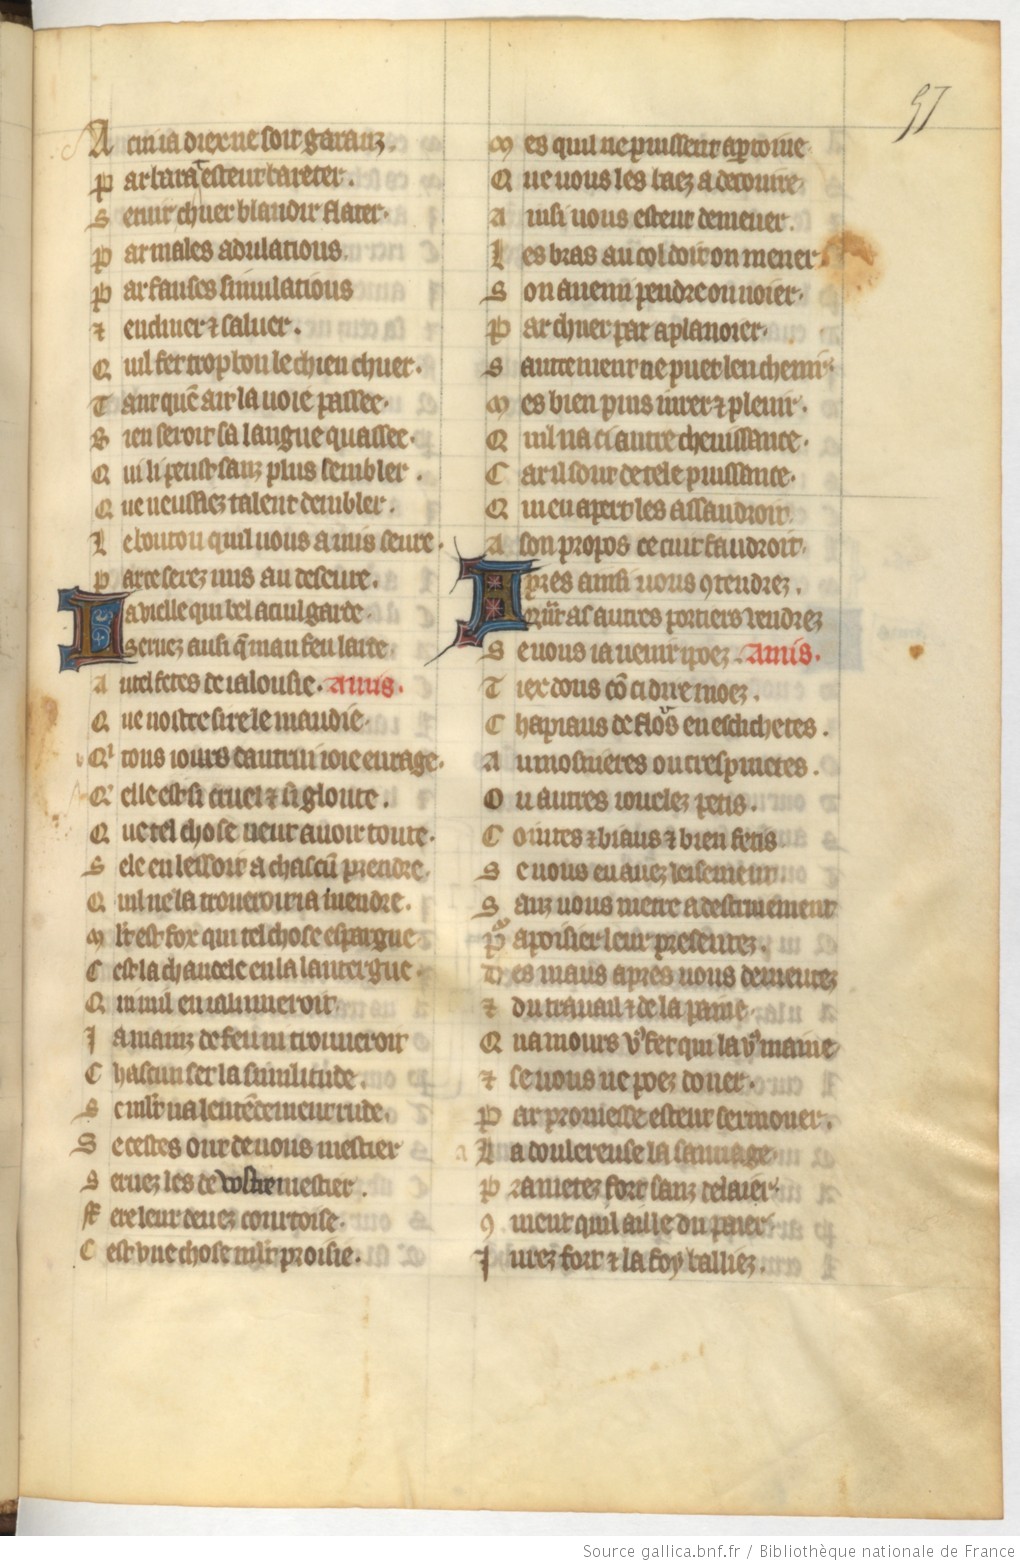 57
A cui ia diex ne soit garanz.
P ar barat esteut bareter.
S eruir chuer blandir flater.
P ar males adulations
P ar fauses simulations
⁊ encliner ⁊ saluer.
Q uil fet trop bon le chien chuer.
T ant quē ait la uoie passee.
B ien seroit sa langue quassee.
Q ui li peust sanz plus sembler.
Q ue neussiez talent dembler.
L e bouton quil uous a mis seure.
P ar ce serez mis au deseure.
La uielle qui bel acuil garde.
Seruez ausi q̄ mau feu larde.
A utel fetes de ialousie. amis.
Q ue nostre sire le maudie.
Qⁱ tous iours dautrui ioie enrage.
Q' elle est si cruel ⁊ si gloute.
Q ue tel chose ueut auoir toute.
S ele en lessoit a chascū prendre.
Q uil ne la troueroit ia mendre.
M lt est fox qui tel chose espargne
C est la chandele en la lanterne
Q ui mil en i alumeroit.
J a mainz de feu ni trouueroit
C hascun set la similitude.
S e mlt na lentēdement rude.
S e cestes ont de uous mestier
S eruez les de vostre mestier.
F ere leur deuez courtoise.
C est vne chose mlt proisie.
M es quil ne puissent apercoiue
Q ue uous les baez a decoiure.
A insi uous esteut demener.
L es bras au col doit on mener
S on anemi pendre ou noier.
P ar chuer par aplanoier.
S autrement ne puet len cheuir
M es bien puis iurer ⁊ pleuir.
Q uil na ci autre cheuissance.
C ar il sont de tele puissance.
Q ui en apert les assaudroit
A son propos ce cuit faudroit.
Apres ainsi uous 9tendrez.
Qn̄t as autres portiers vendrez
S e uous ia uenir ipoez. amis.
T iex dons cō ci dire moez.
C hapiaus de flors en esclichetes.
A umosnieres ou crespinetes.
O u autres ioueles petis.
C ointes ⁊ biaus ⁊ bien fetis
S e uous en auez lesement.
S anz uous metre a destruiement
P' apoisier leur presentez.
D es maus apres uous dementez
⁊ du trauail ⁊ de la paine.
Q namours v' fet qui la v' maine
⁊ se uous ne poez doner.
P ar promesse esteut sermoner.
P rametez fort sanz delaier.
9 ment quil aille du paier.
J urez fort ⁊ la foy balliez.
Source gallica.bnf.fr / Bibliothèque nationale de France